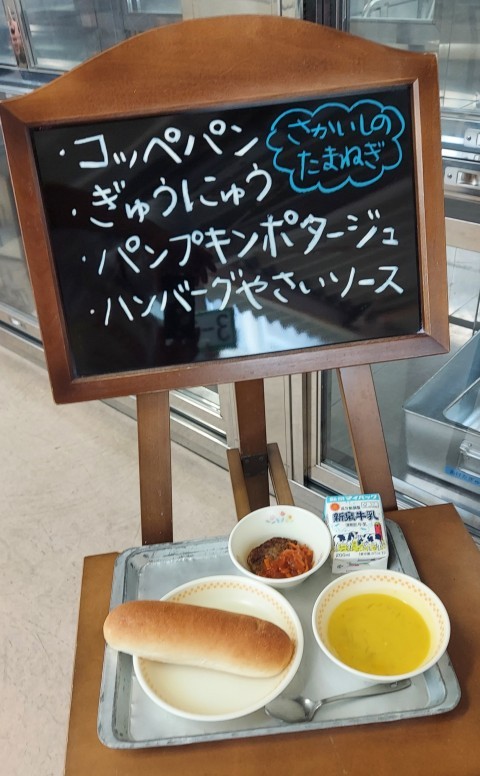 ・コッペパン
さかいしの
たまねぎ
・ぎゅうにゅう
・パンプキンポタージュ
・ハンバーグやさいソース
新泉牛乳